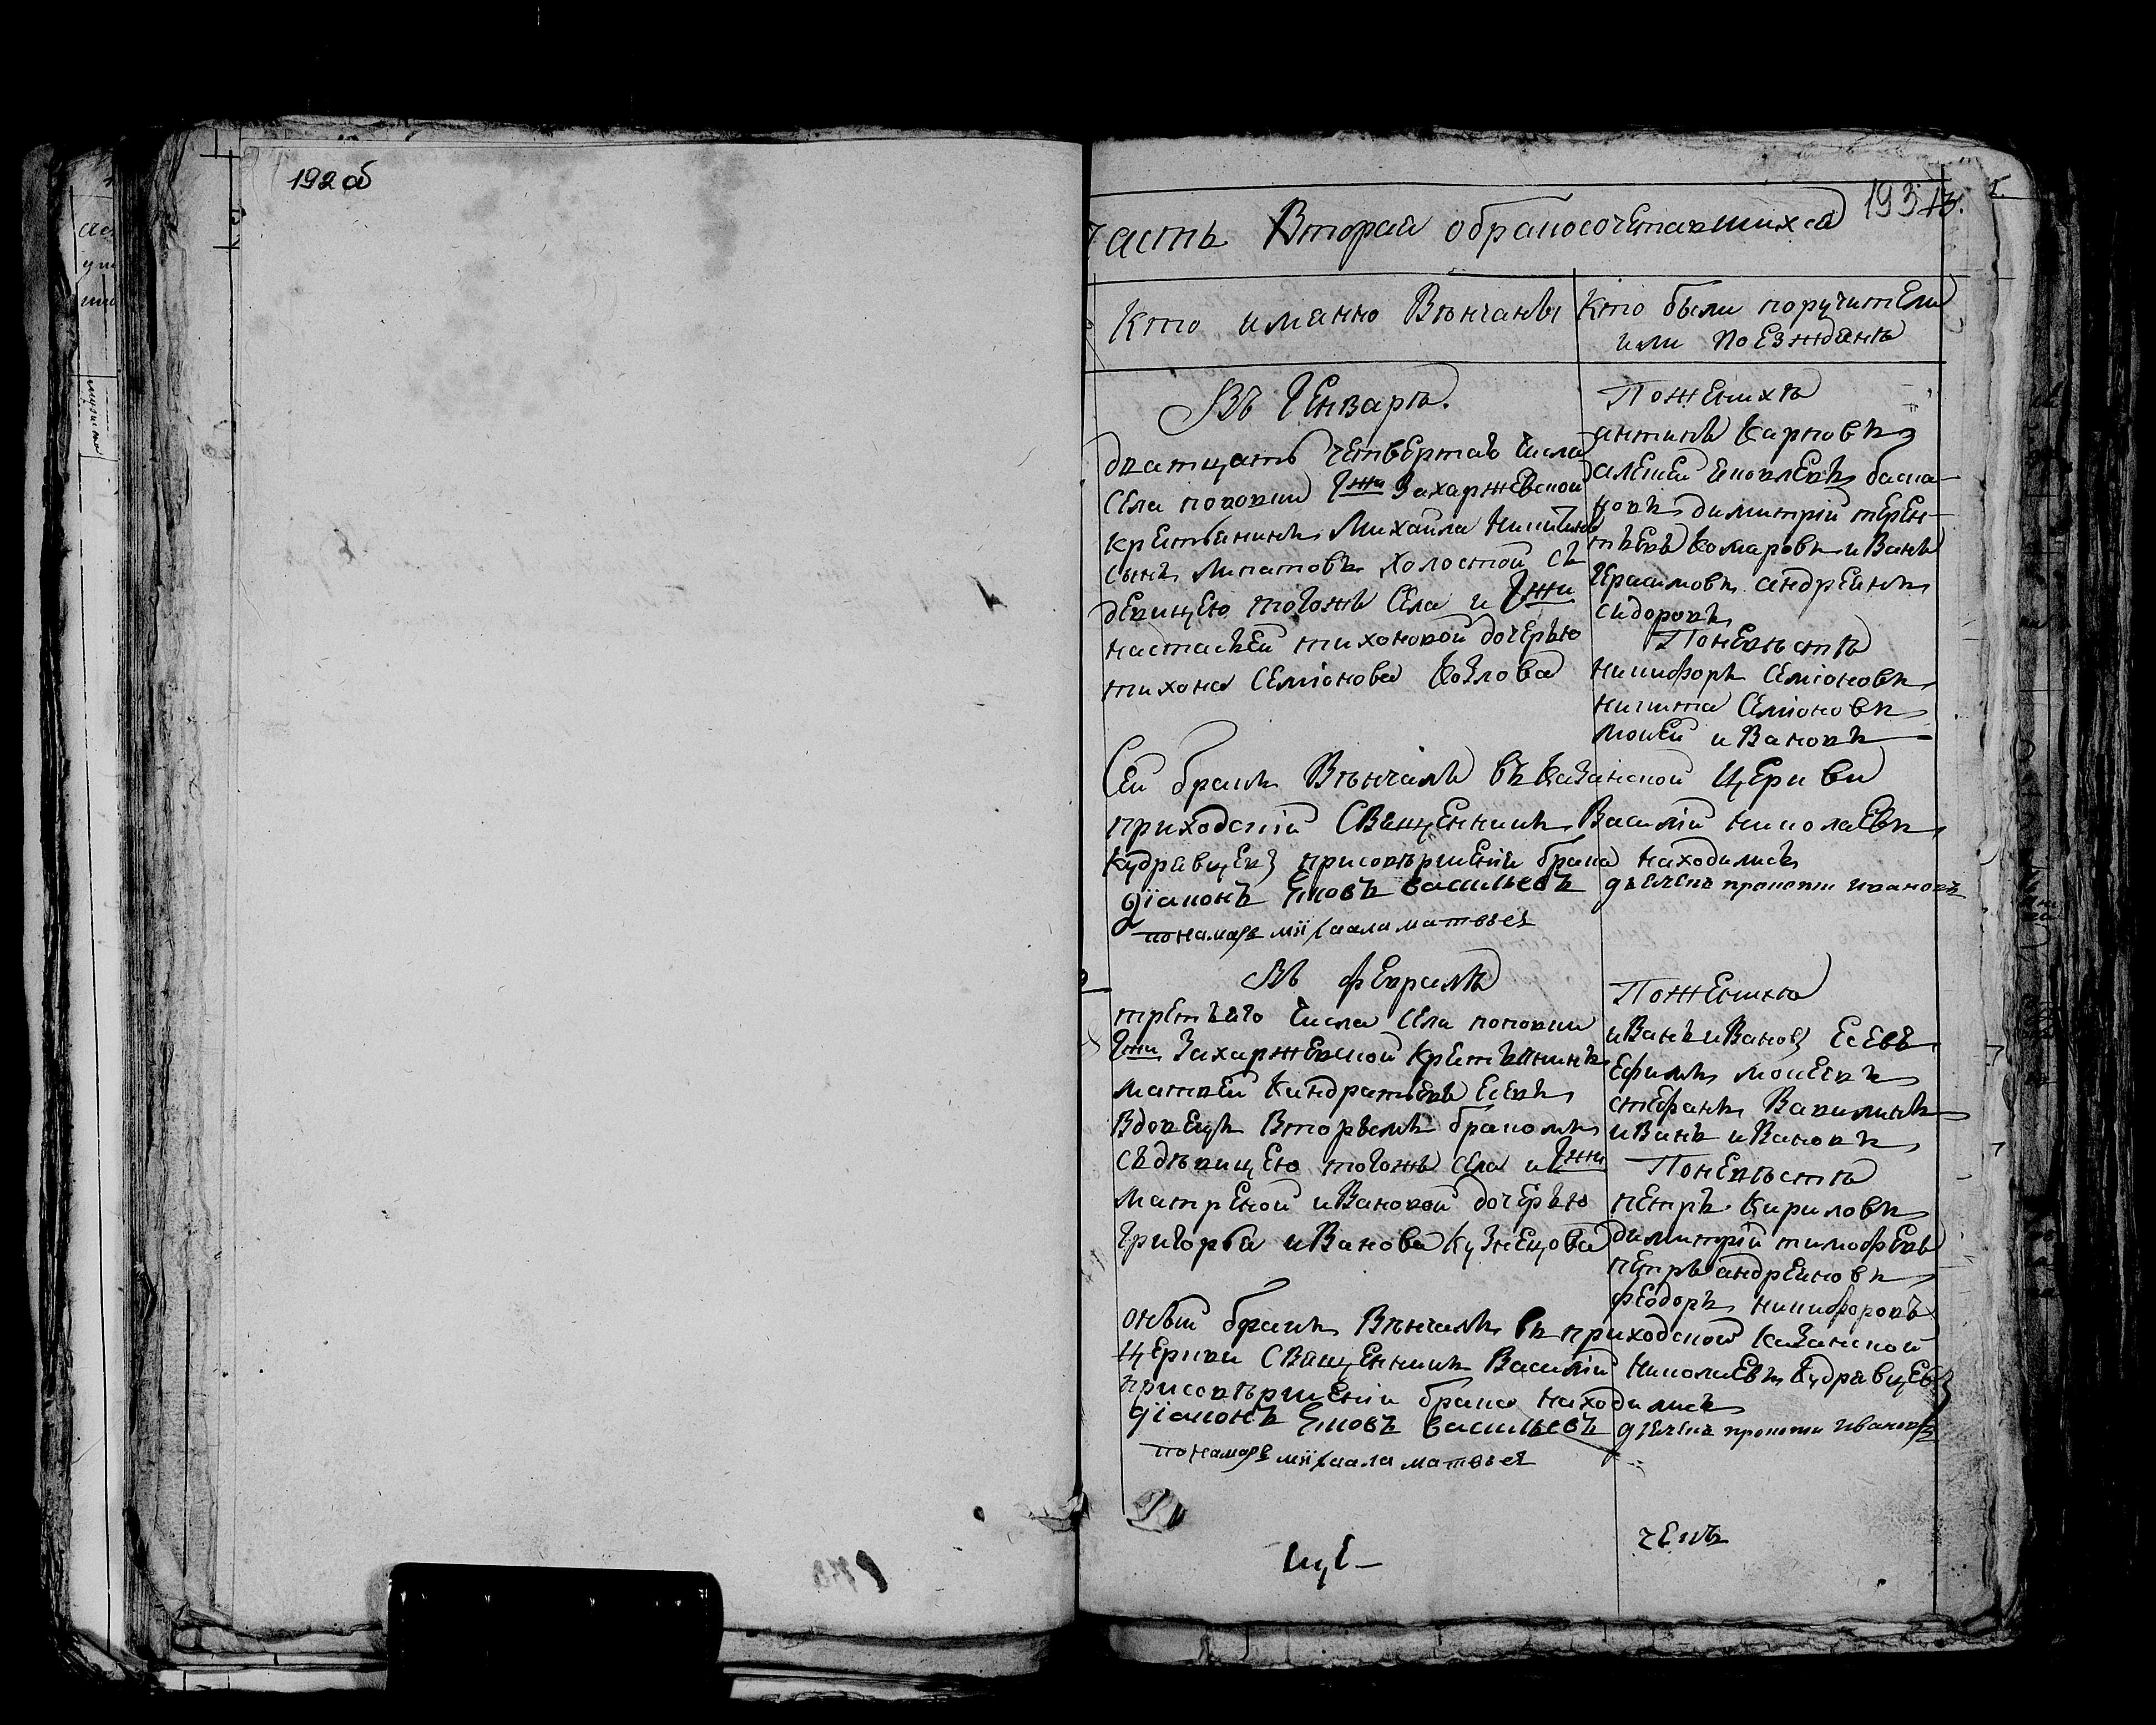 192 об
193 13.
часть Вторая обракосочетавшихся
Кто имянно Венчаны
Кто были поручители
или поезжанѣ
Въ Генварѣ.
дватцать четвертаго числа
села пококии Гжи Захаржевской
крестьянинъ Михаила Никитинъ
сынъ Липатовъ холостой съ
девицею тогожъ села и Гжи
настасьей тихоновой дочерью
тихона Семіонова Козлова
По женихѣ
антипъ Карповъ
алексей яковлевъ баска-
ковъ димитрій терен-
тьевъ комаровъ иванъ
Герасимовъ андреянъ
сидоровъ
По невѣстѣ
никифоръ Семіоновъ
никита Семіоновъ
моисей ивановъ
Сей бракъ Венчалъ въ казанской церкви
приходскій Священникъ Василій николаевъ
Кудрявцевъ присовѣршеніи брака находились
діаконъ яковъ васильевъ дьячекъ прокопи ивановъ
понамарь михаила матвѣев
Въ февралѣ
третьяго числа села пококии
Гжи Захаржевской крестьянинъ
матвей Киндратьевъ Есевъ
Вдовецъ Вторымъ бракомъ
съ дѣвицею тогожъ села и Гжи
матреной ивановой дочерью
Григорья иванова Кузнецова
По женихѣ
иванъ ивановъ Есевъ
Ефимъ моисевъ
стефанъ Вавилинъ
иванъ ивановъ
По невѣстѣ
петръ Кириловъ
димитрій тимофевъ
петръ андреяновъ
феодоръ никифоровъ
оный бракъ Венчалъ въ приходской казанской
церкви Священникъ Василій Николаевъ Кудрявцевъ
присовѣршеніи брака находились
діаконъ яковъ васильевъ дьячекъ прокопи ивановъ
понамарь михаила матвѣев